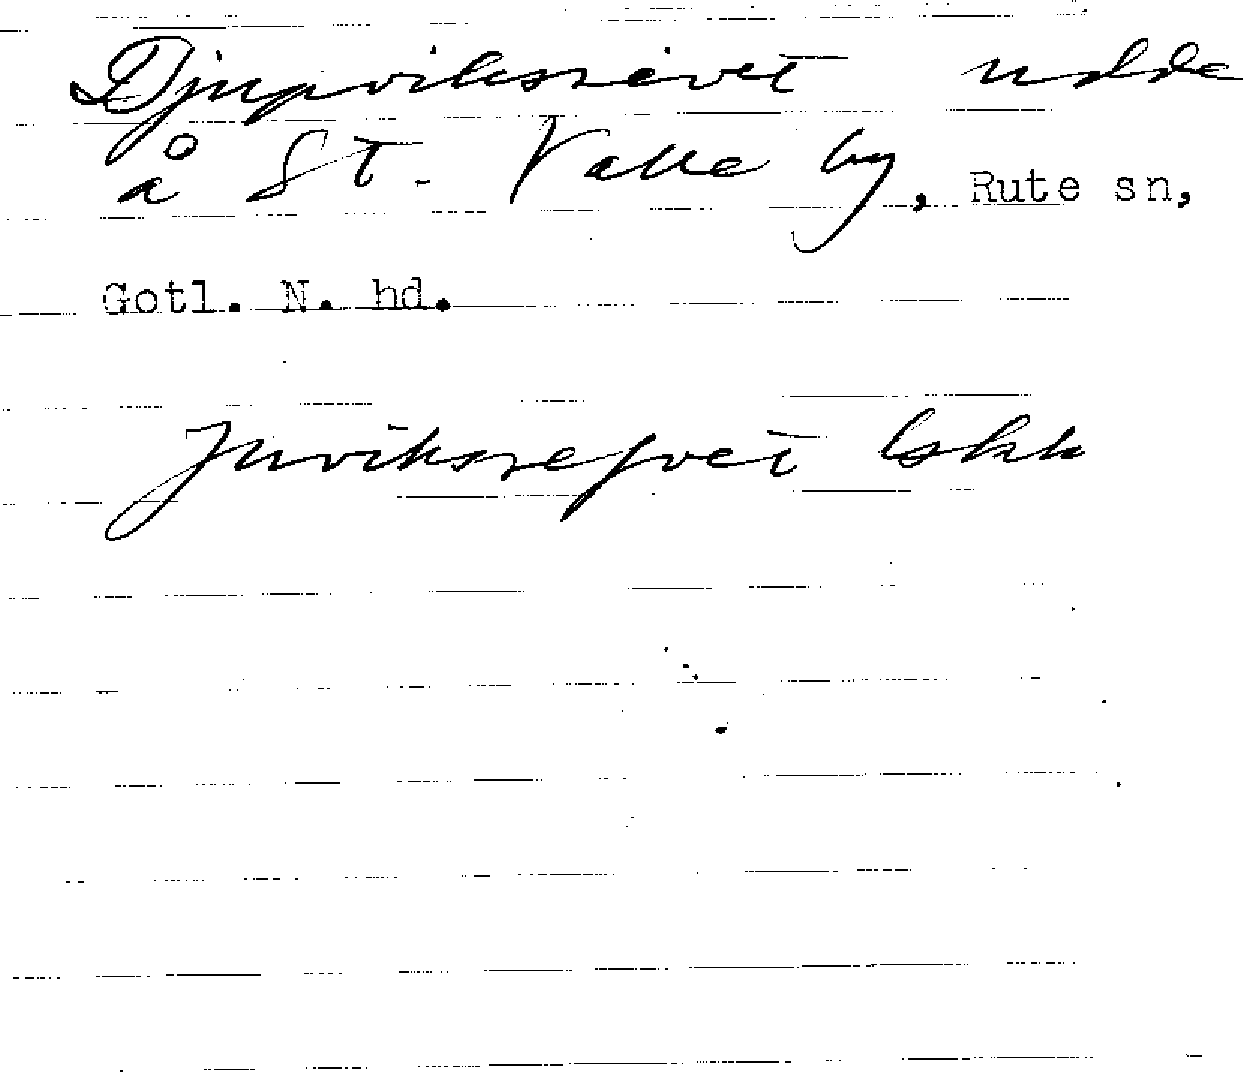 Djupviksrevet udde
å St. Valle by, Rute sn,
Gotl. N. hd.
Juviksrefvet Gskk